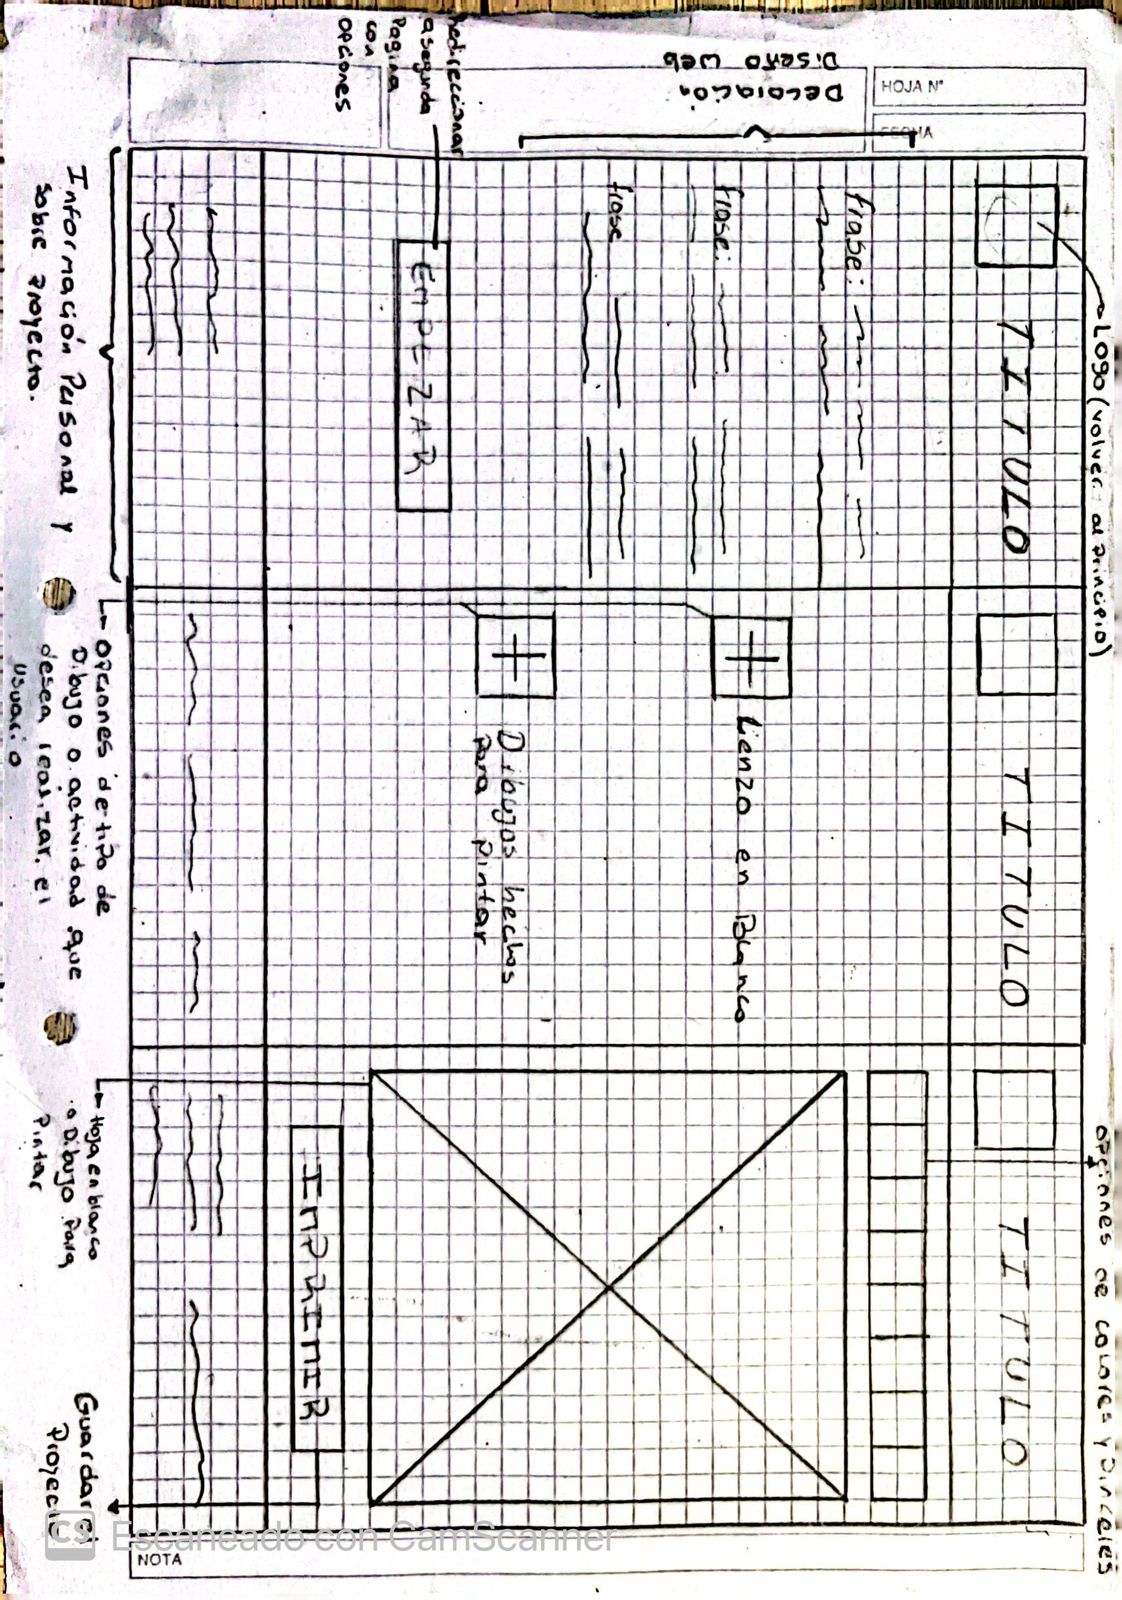 HOJA N°
FECHA
Diseño web
Decoración
Redireccionar
a segunda
Pagina
con
opciones
Logo (volver al principio)
TITULO
frase:
frase:
frase
EMPEZAR
Información Personal y
sobre Proyecto.
TITULO
Lienzo en Blanco
Dibujos hechos
para pintar
opciones de tipo de
Dibujo o actividad que
desea realizar el
usuario
opciones de colores y pinceles
TITULO
IMPRIMIR
Hoja en blanco
o Dibujo para
Pintar
Guardar
Proyecto
NOTA
CS Escaneado con CamScanner